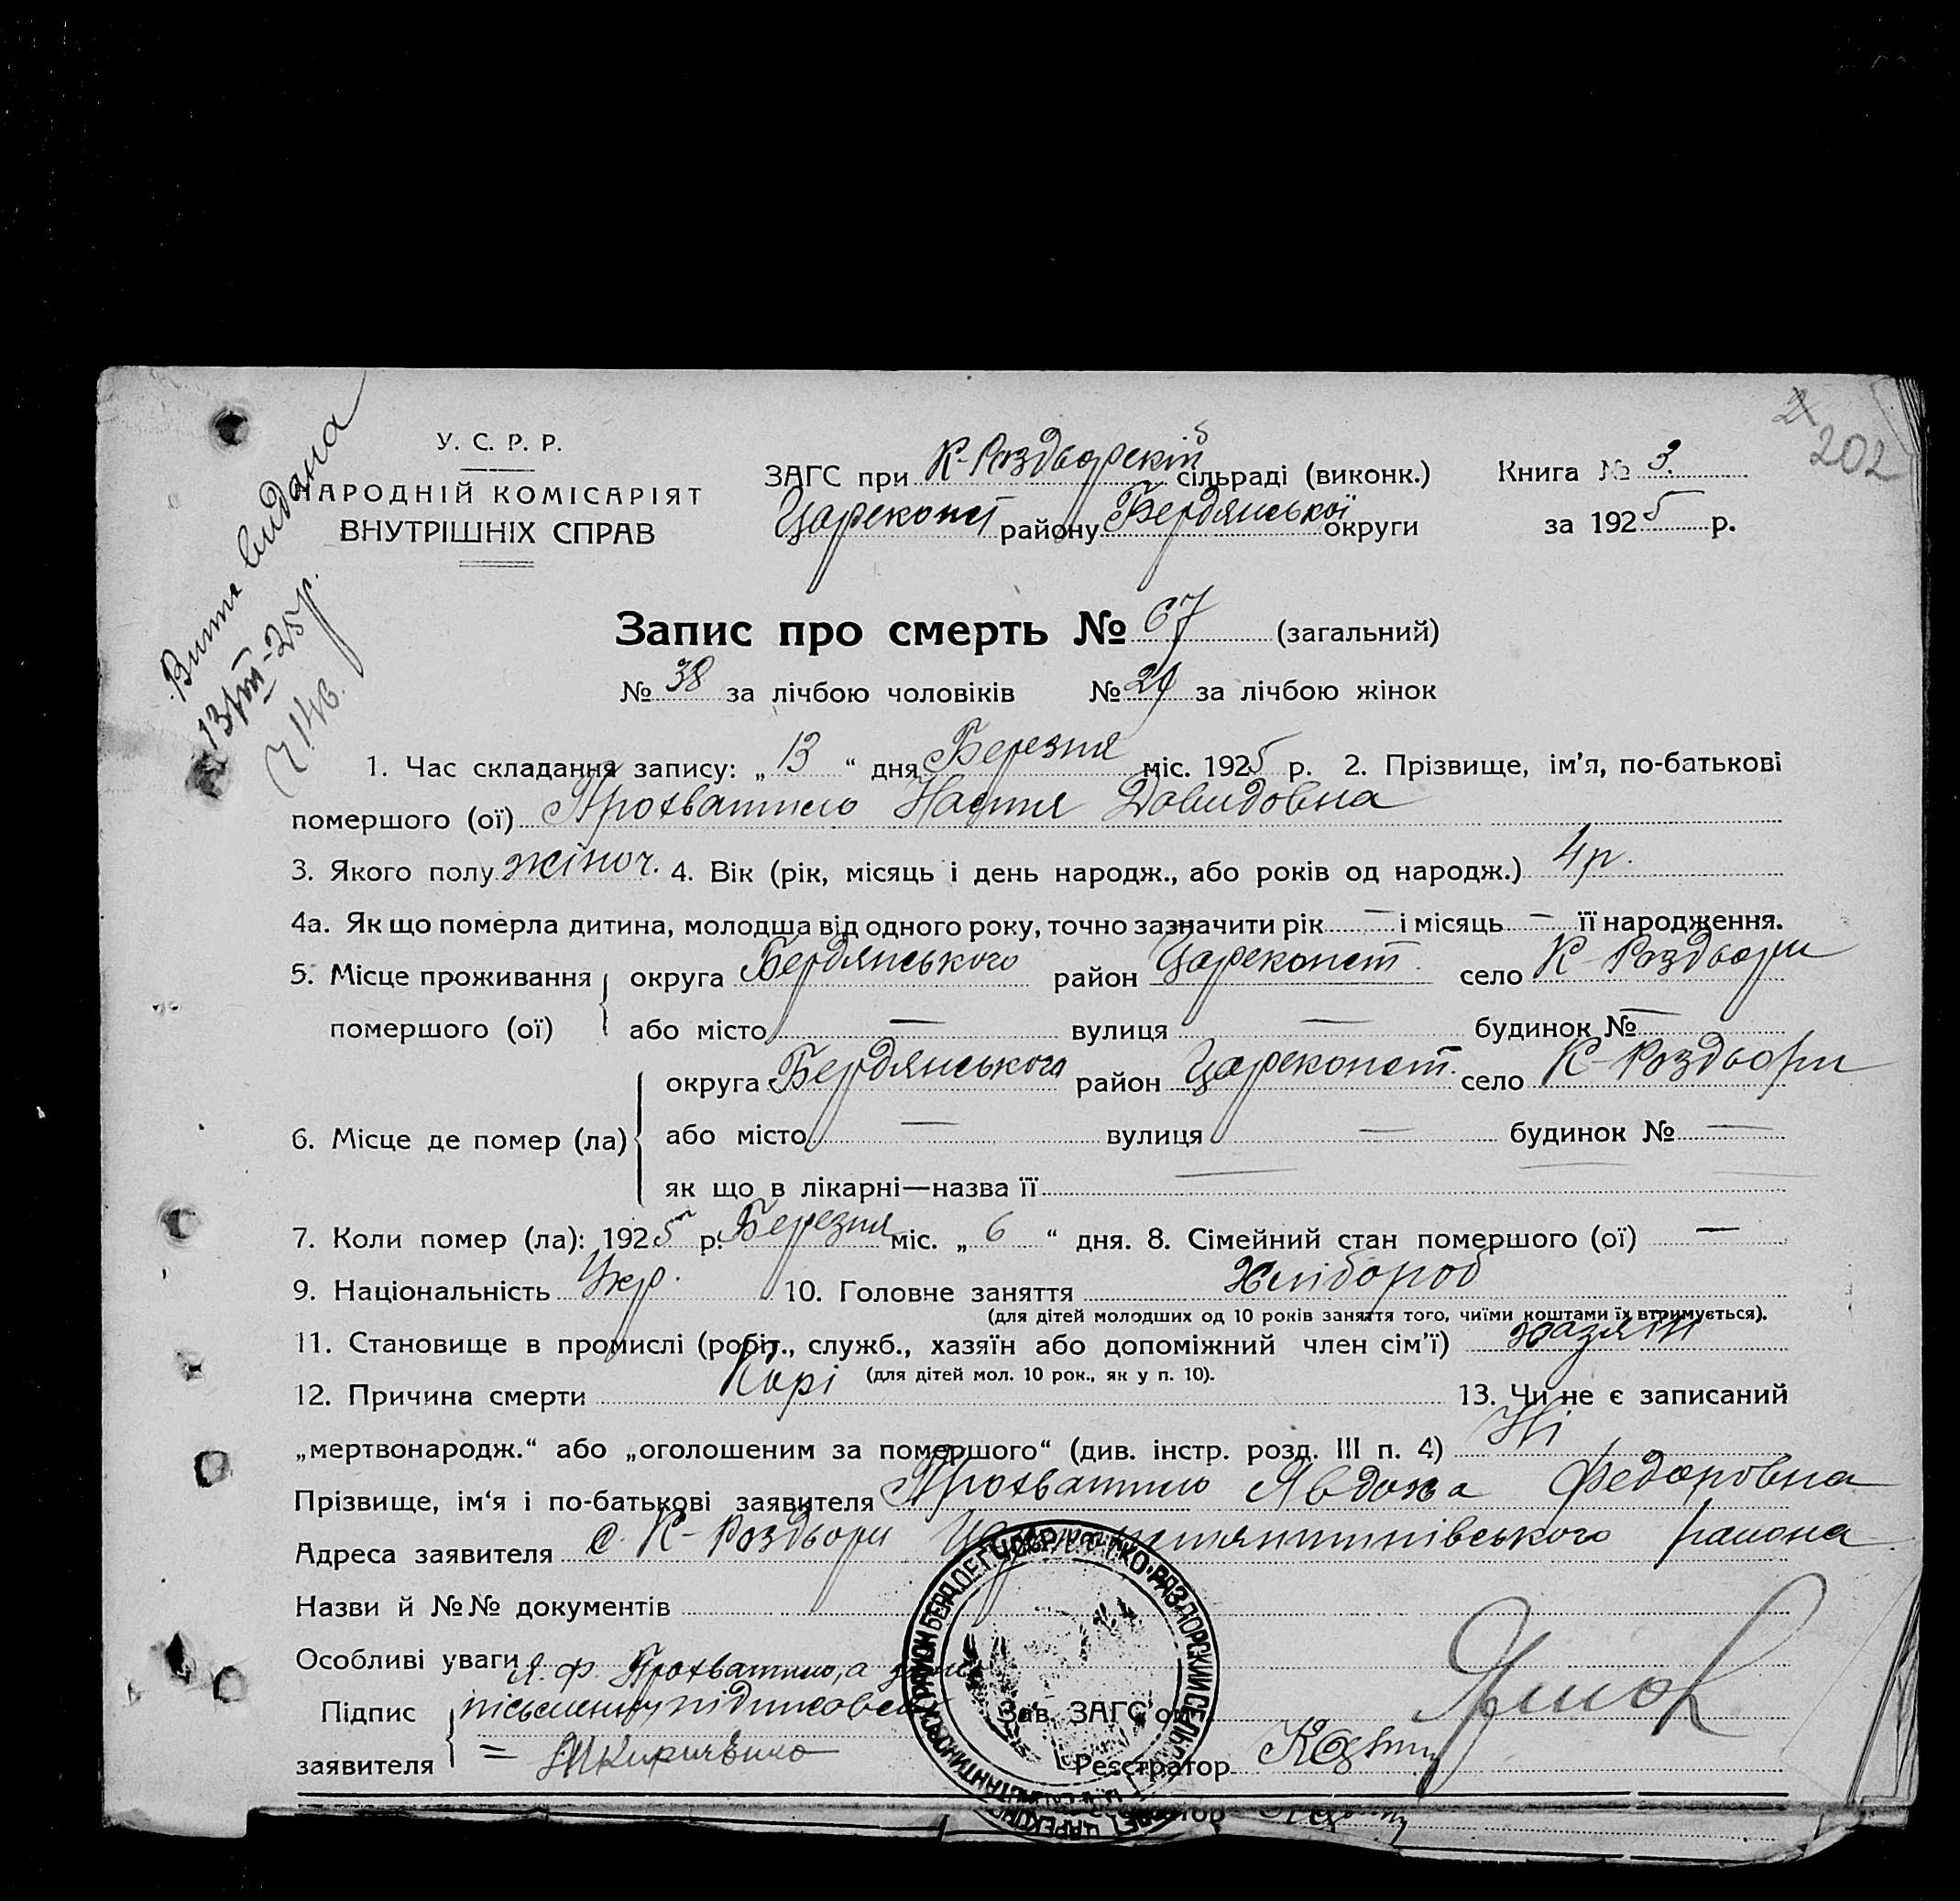 2
202
Випис видана
13/VIII-25р.
Ч 146.
У. С. Р. Р.
НАРОДНІЙ КОМІСАРІЯТ
ВНУТРІШНІХ СПРАВ
ЗАГС при К-Роздорскій сільраді (виконк.) Книга № 3.
Цареконст району Бердянської округи за 1925 р.
Запис про смерть № 67 (загальний)
№ 38 за лічбою чоловіків № 29 за лічбою жінок
1. Час складання запису: „ 13 “ дня Березня міс. 1925 р. 2. Прізвище, ім'я, по-батькові
помершого (ої) Прохватило Настя Довидовна
3. Якого полу жіноч. 4. Вік (рік, місяць і день народж., або років од народж.) 4 р.
4а. Як що померла дитина, молодша від одного року, точно зазначити рік — і місяць — її народження.
5. Місце проживання округа Бердянського район Цареконст. село К-Роздьори
помершого (ої) або місто — вулиця — будинок № —
округа Бердянського район Цареконст. село К-Роздьори
6. Місце де помер (ла) або місто — вулиця — будинок № —
як що в лікарні—назва її —
7. Коли помер (ла): 1925 р. Березня міс. „ 6 “ дня. 8. Сімейний стан помершого (ої) —
9. Національність Укр. 10. Головне заняття Хлібороб
(для дітей молодших од 10 років заняття того, чиїми коштами їх втримується).
11. Становище в промислі (робіт., служб., хазяїн або допоміжний член сім'ї) хазяїн
(для дітей мол. 10 рок., як у п. 10).
12. Причина смерти Корі 13. Чи не є записаний
„мертвонародж.“ або „оголошеним за помершого“ (див. інстр. розд. III п. 4) Ні
Прізвище, ім‘я і по-батькові заявителя Прохватило Явдоха Федоровна
Адреса заявителя с. К-Роздьори Царекостянтинівського района
Назви й №№ документів
Особливі уваги Я. Ф. Прохватило, а за
Підпис підписовся Зав. ЗАГС'ом
заявителя = Кириченко Реєстратор